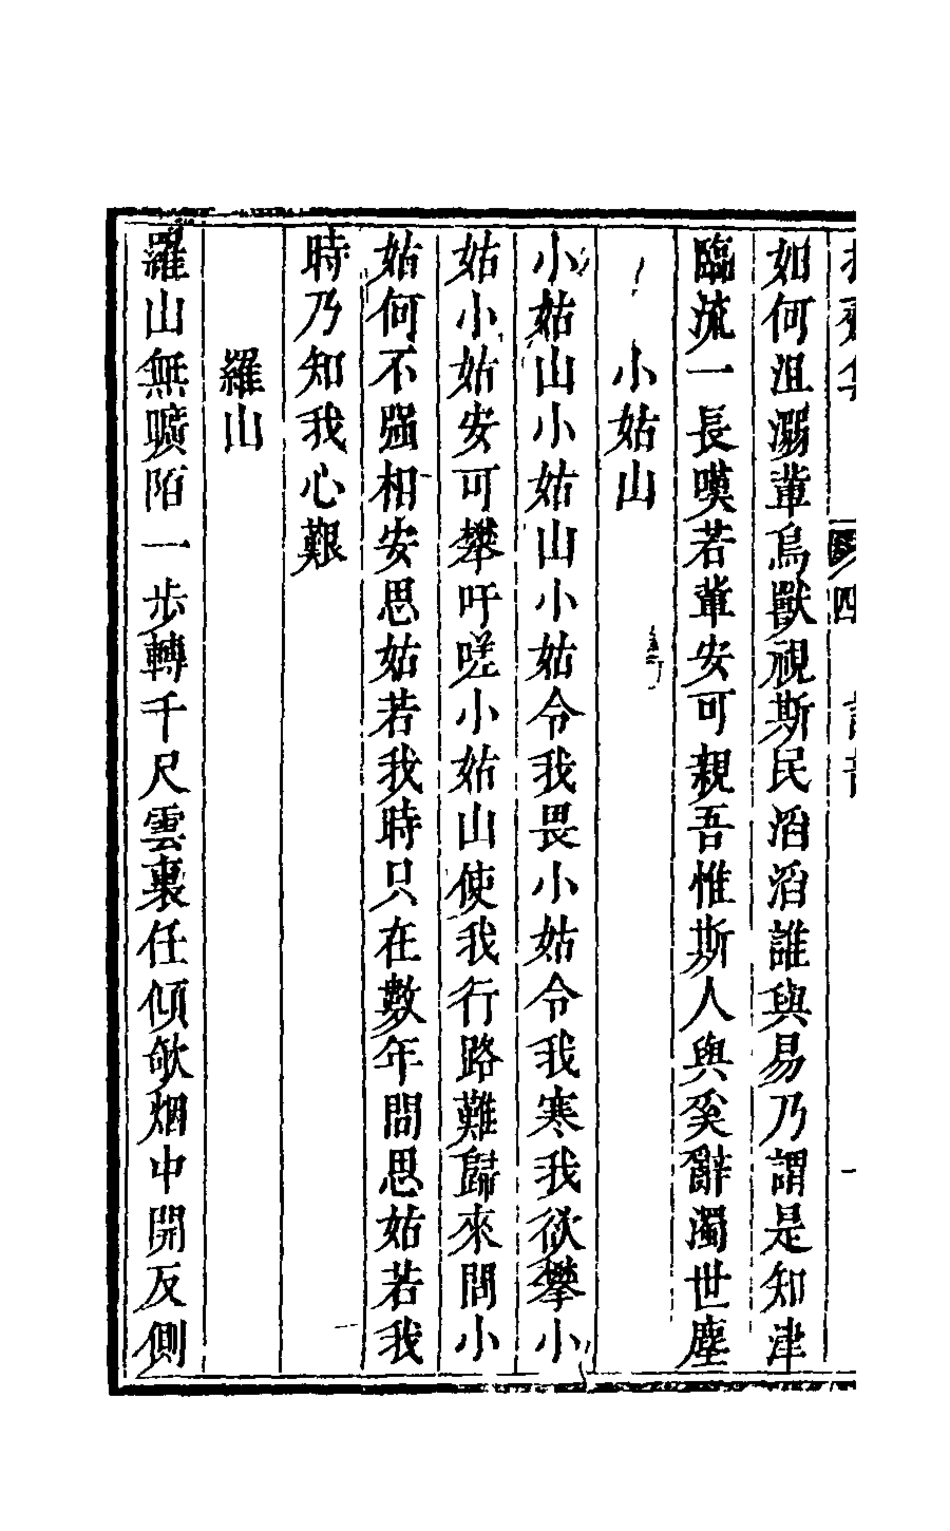 四
如何沮溺輩鳥獸視斯民滔滔誰與易乃謂是知津
臨流一長嘆若輩安可親吾惟斯人與奚辭濁世塵
小姑山
小姑山小姑山小姑令我畏小姑令我寒我欲攀小
姑小姑安可攀吁嗟小姑山使我行路難歸來問小
姑何不強相安思姑若我時只在數年間思姑若我
時乃知我心艱
羅山
羅山無曠陌一步轉千尺雲裏任傾欹烟中開反側